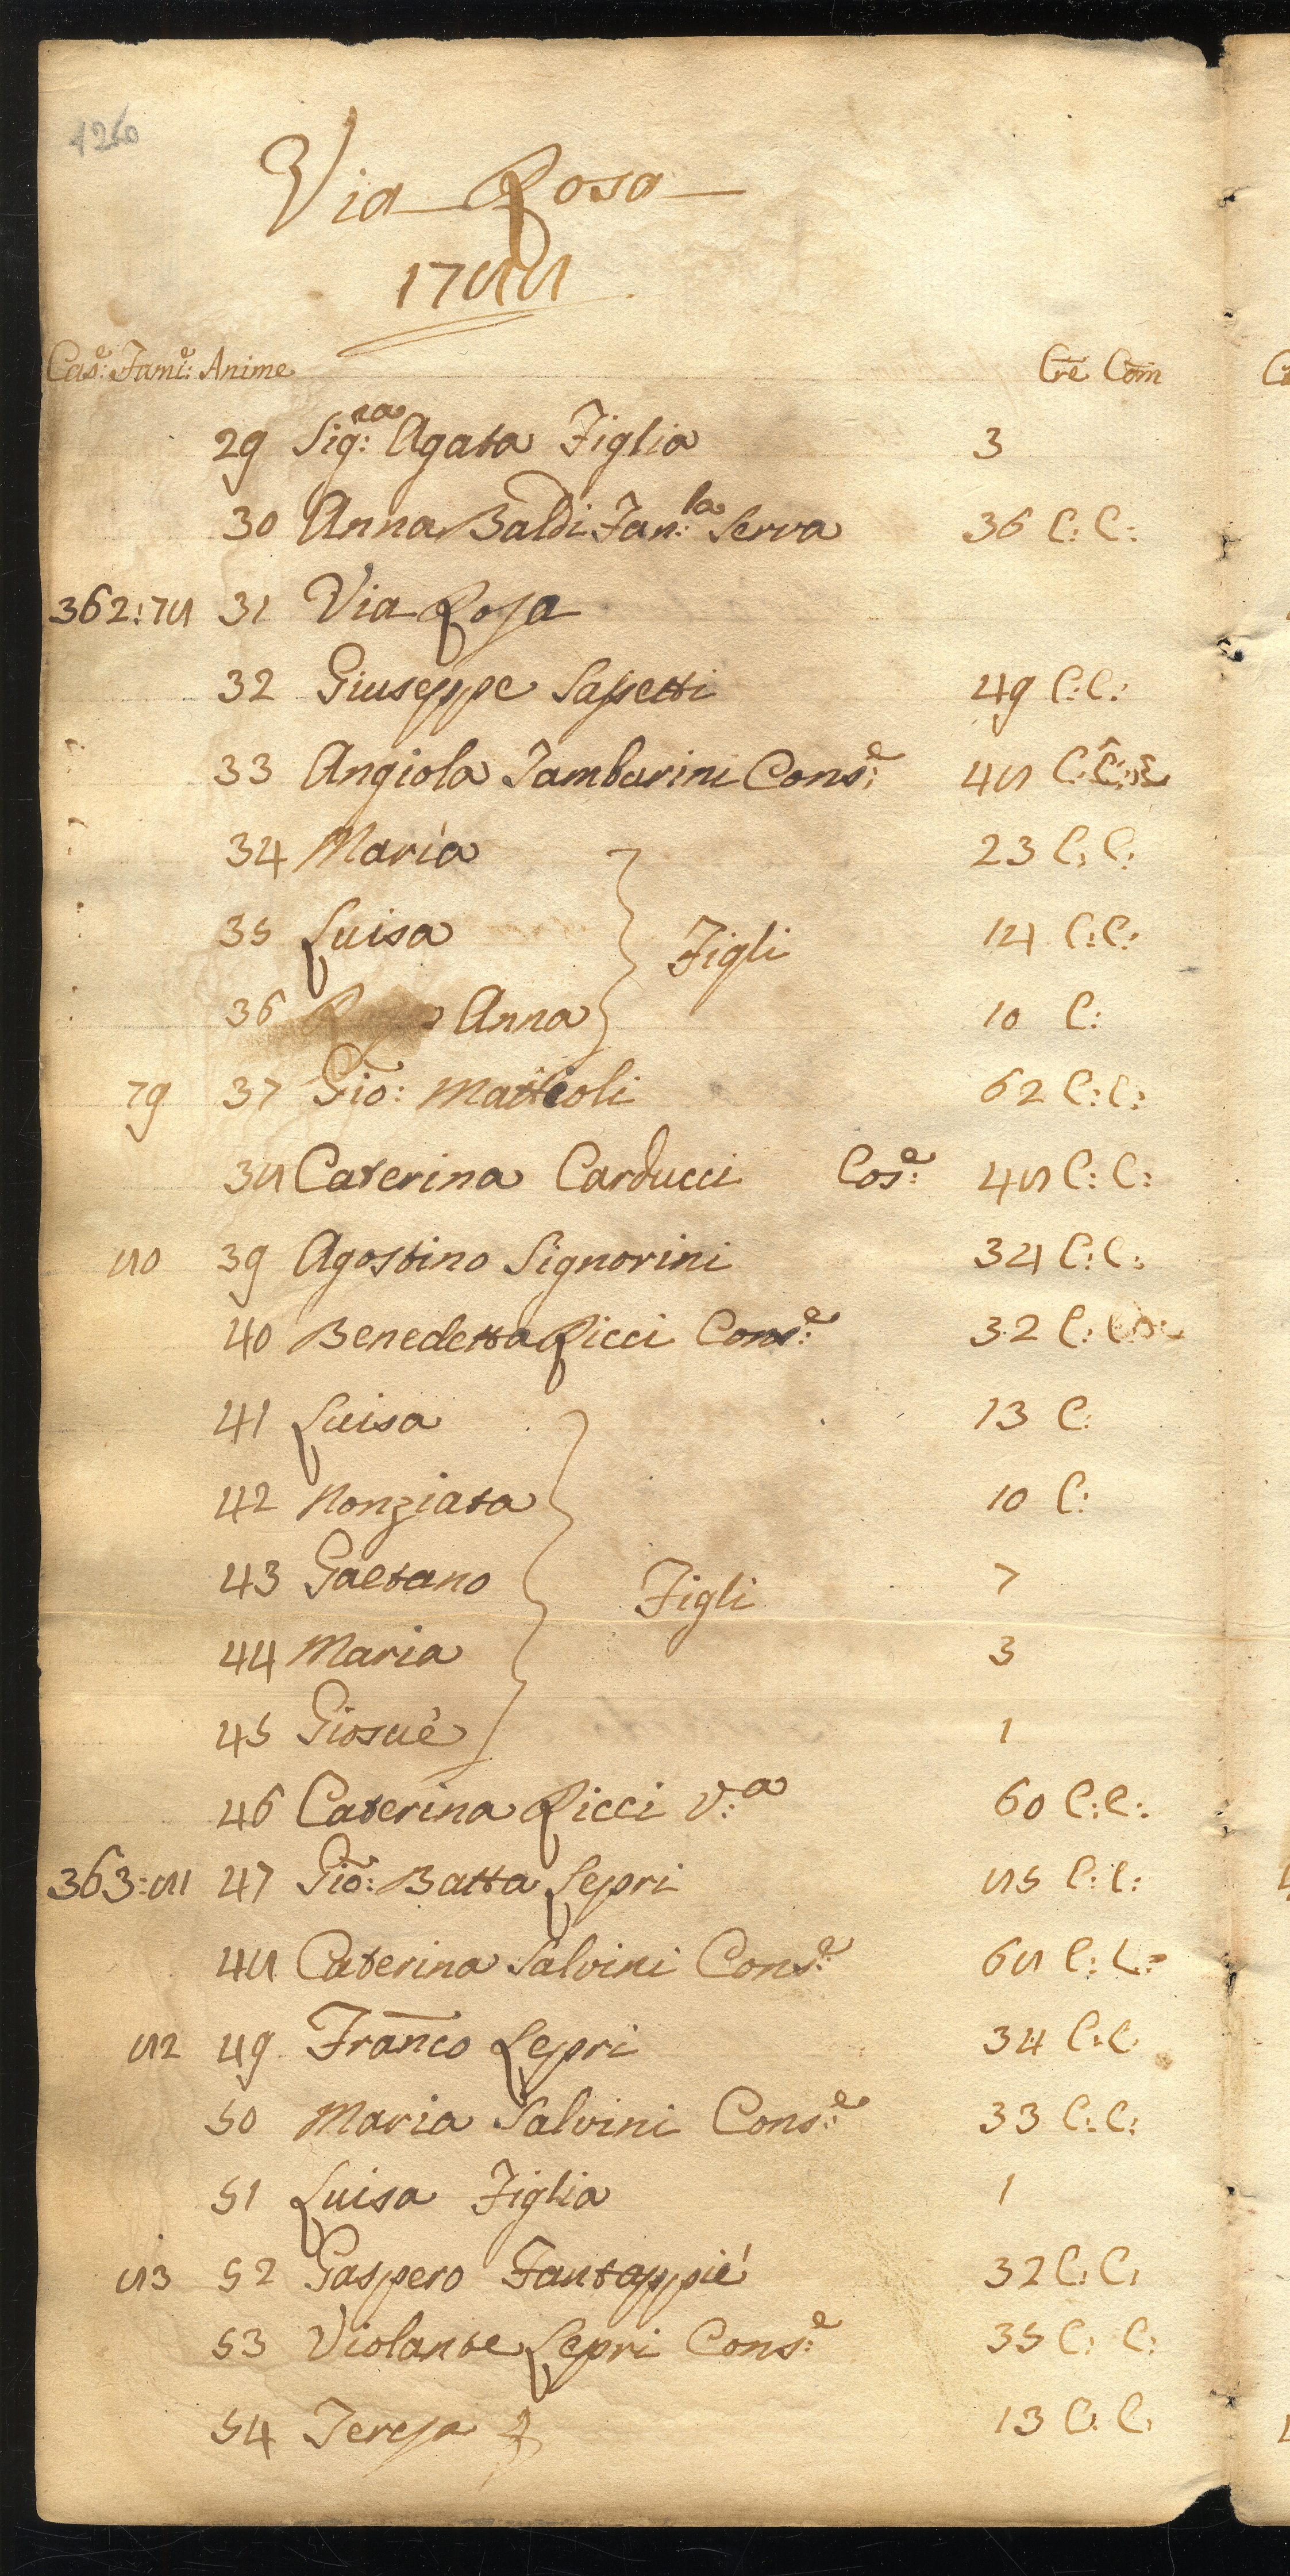 1260
Via Rosa
1788
Cas:e Fami:e Anime Cre Com
29 Sig:ra Agata Figlia 3
30 Anna Baldi Fan:la Serva 36 C: C:
362:78 31 Via Rosa
32 Giuseppe Sassetti 49 C:C:
33 Angiola Tamburini Cons:e 48 C:
34 Maria 23 C: C:
35 Luisa 14 C:C:
Figli
36 Anna 10 C:
79 37 Gio: Matteoli 62 C:C:
38 Caterina Carducci Cos:e 48 C: C:
80 39 Agostino Signorini 34 C:C:
40 Benedetta Ricci Cons:e 32 C:
41 Luisa 13 C:
42 Nonziata 10 C:
43 Gaetano 7
Figli
44 Maria 3
45 Giosuè 1
46 Caterina Ricci V:a 60 C:C:
363:81 47 Gio: Batta Lepri 85 C:C:
48 Caterina Salvini Cons:e 68 C: C:
82 49 Franco Lepri 34 C:C
50 Maria Salvini Cons:e 33 C:C:
51 Luisa Figlia 1
83 52 Gaspero Fantappiè 32 C:C:
53 Violante Lepri Cons:e 35 C: C:
54 Teresa F 13 C: C: